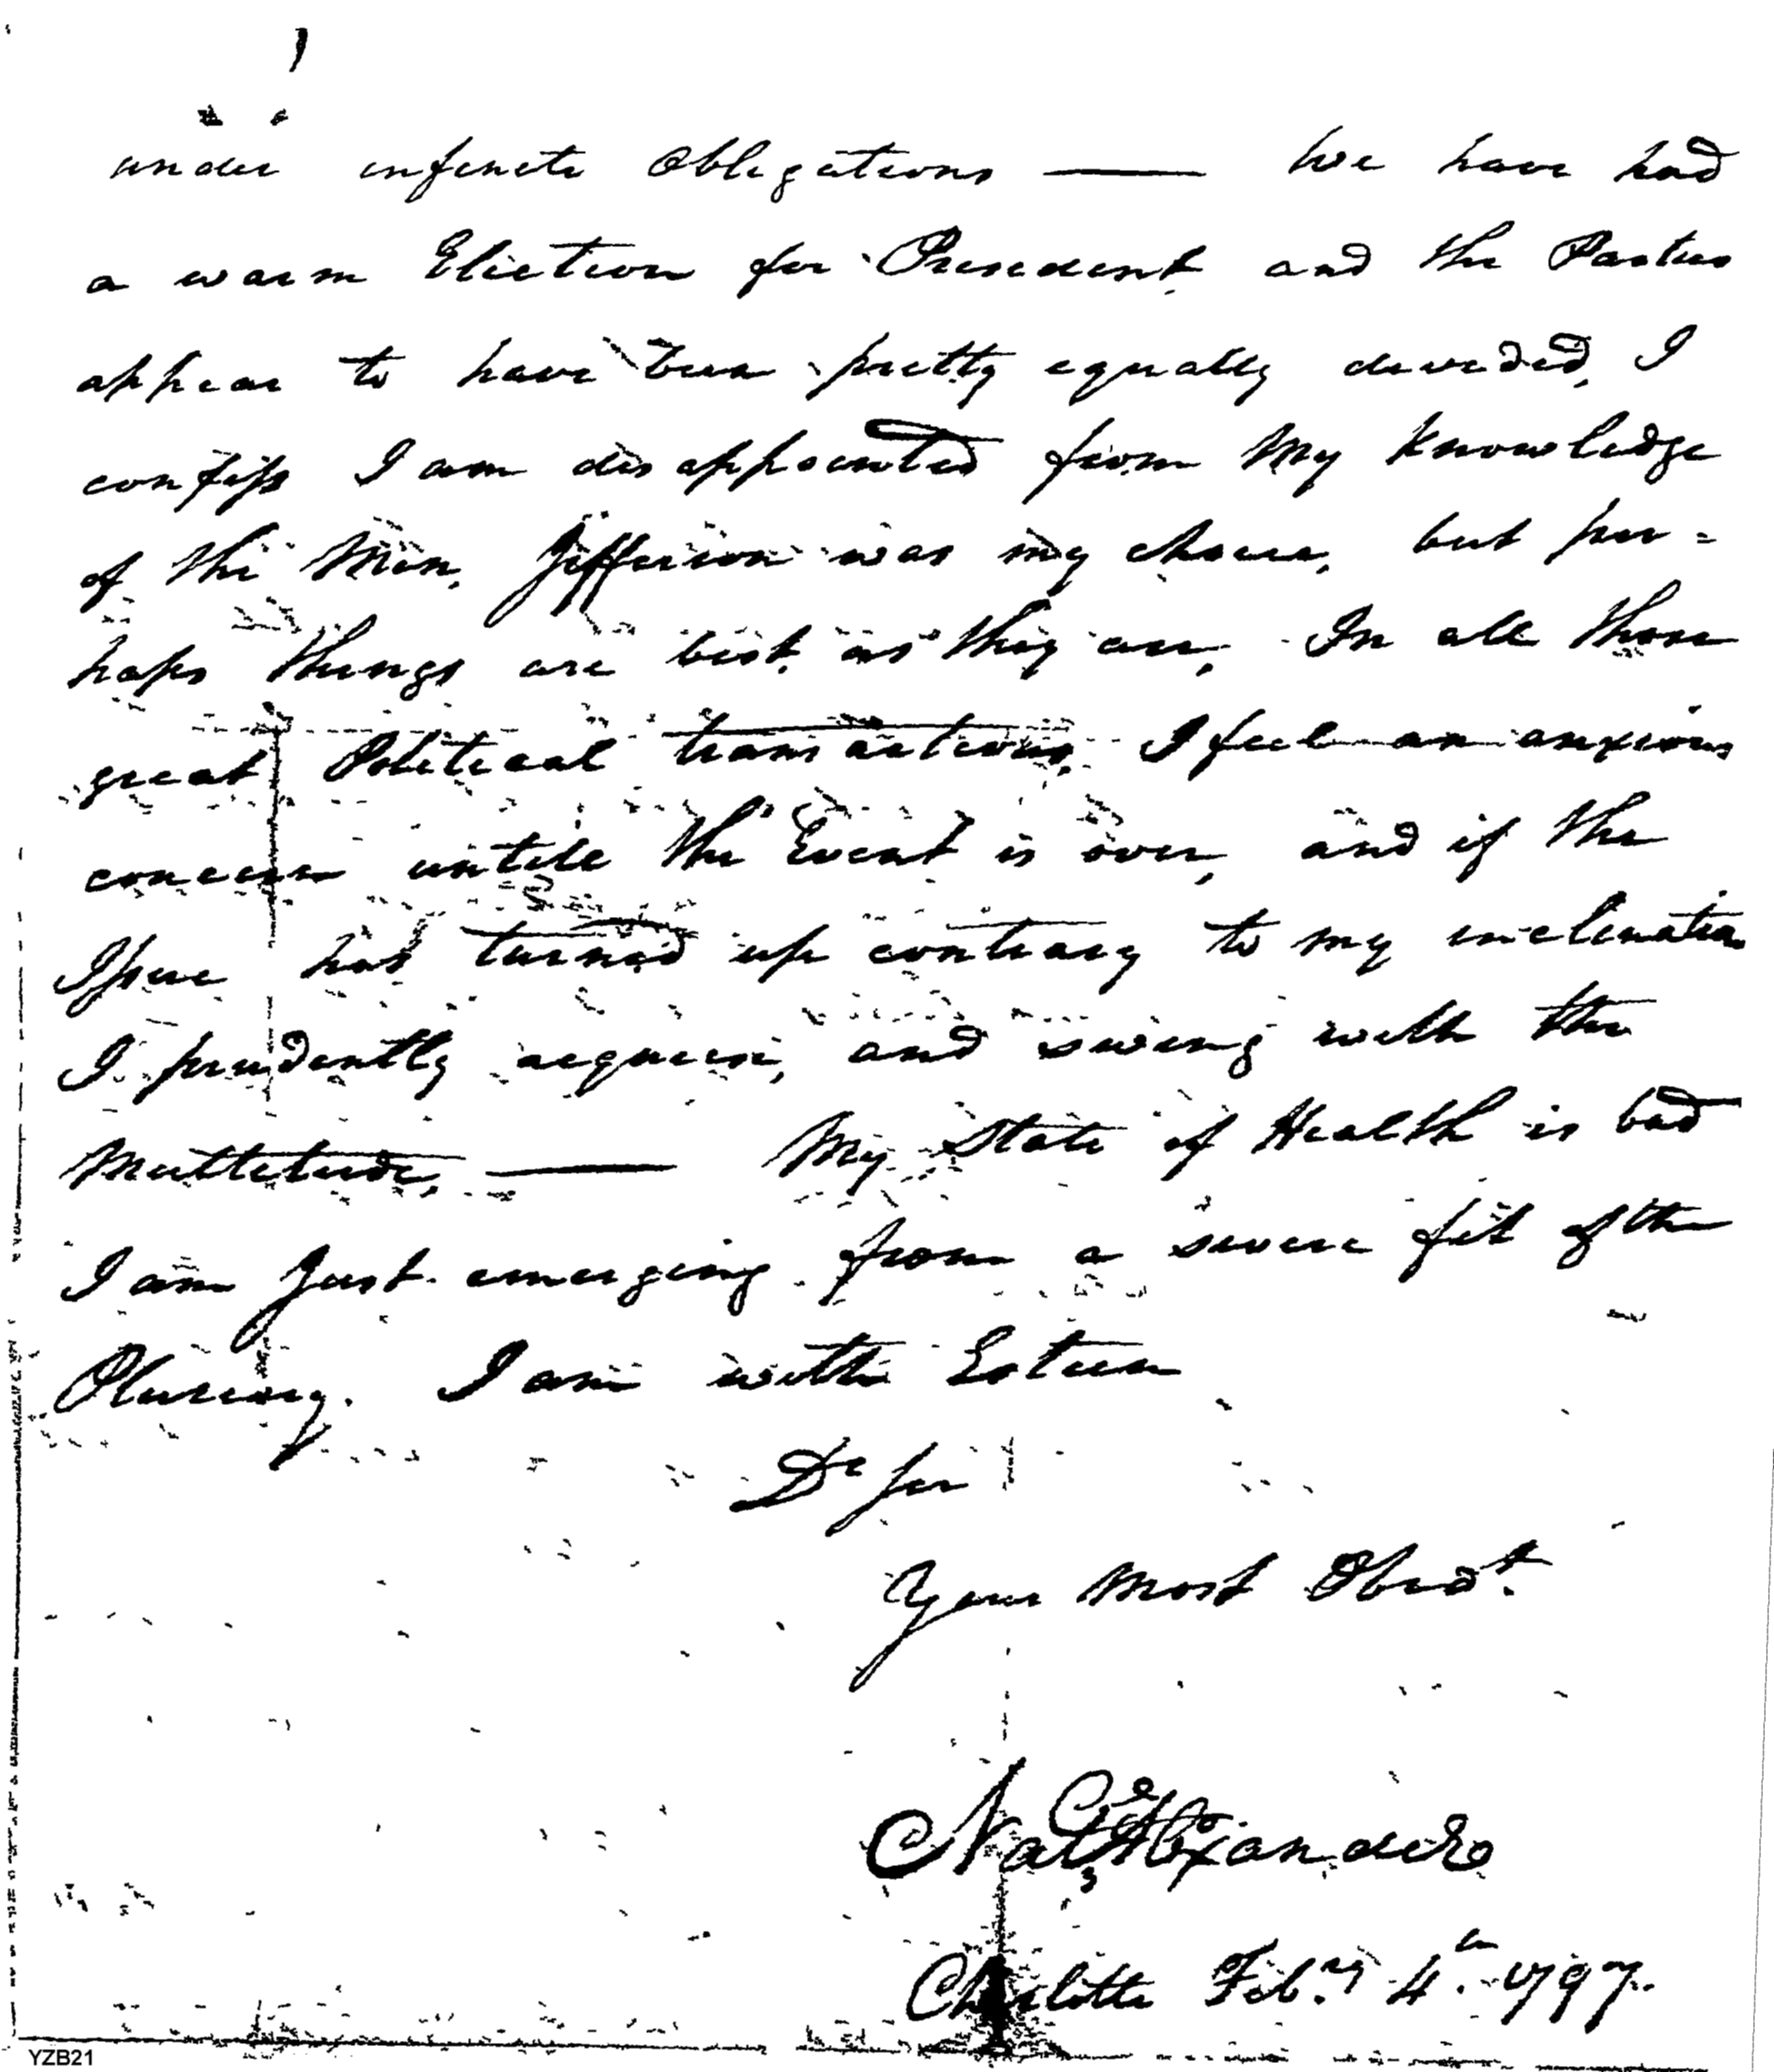 under infinite Obligations — We have had
a warm Election for President and the Parties
appear to have been pretty equally divided, I
confess I am disappointed from My knowledge
of the Men, Jefferson was my choice, but per=
haps things are best as they are, In all those
great Political transactions, I feel an anxious
concern untill the Event is over, and if the
Issue has turned up contrary to my inclination
I prudently acquiese, and swing with the
Multitude, — My State of Health is bad
I am Just emerging from a severe fit of the
Plurisy. I am with Esteem
Dr Sir
Your Most Obedt.
Nat Alexander
Charlotte Feby 4th 1797.
YZB21